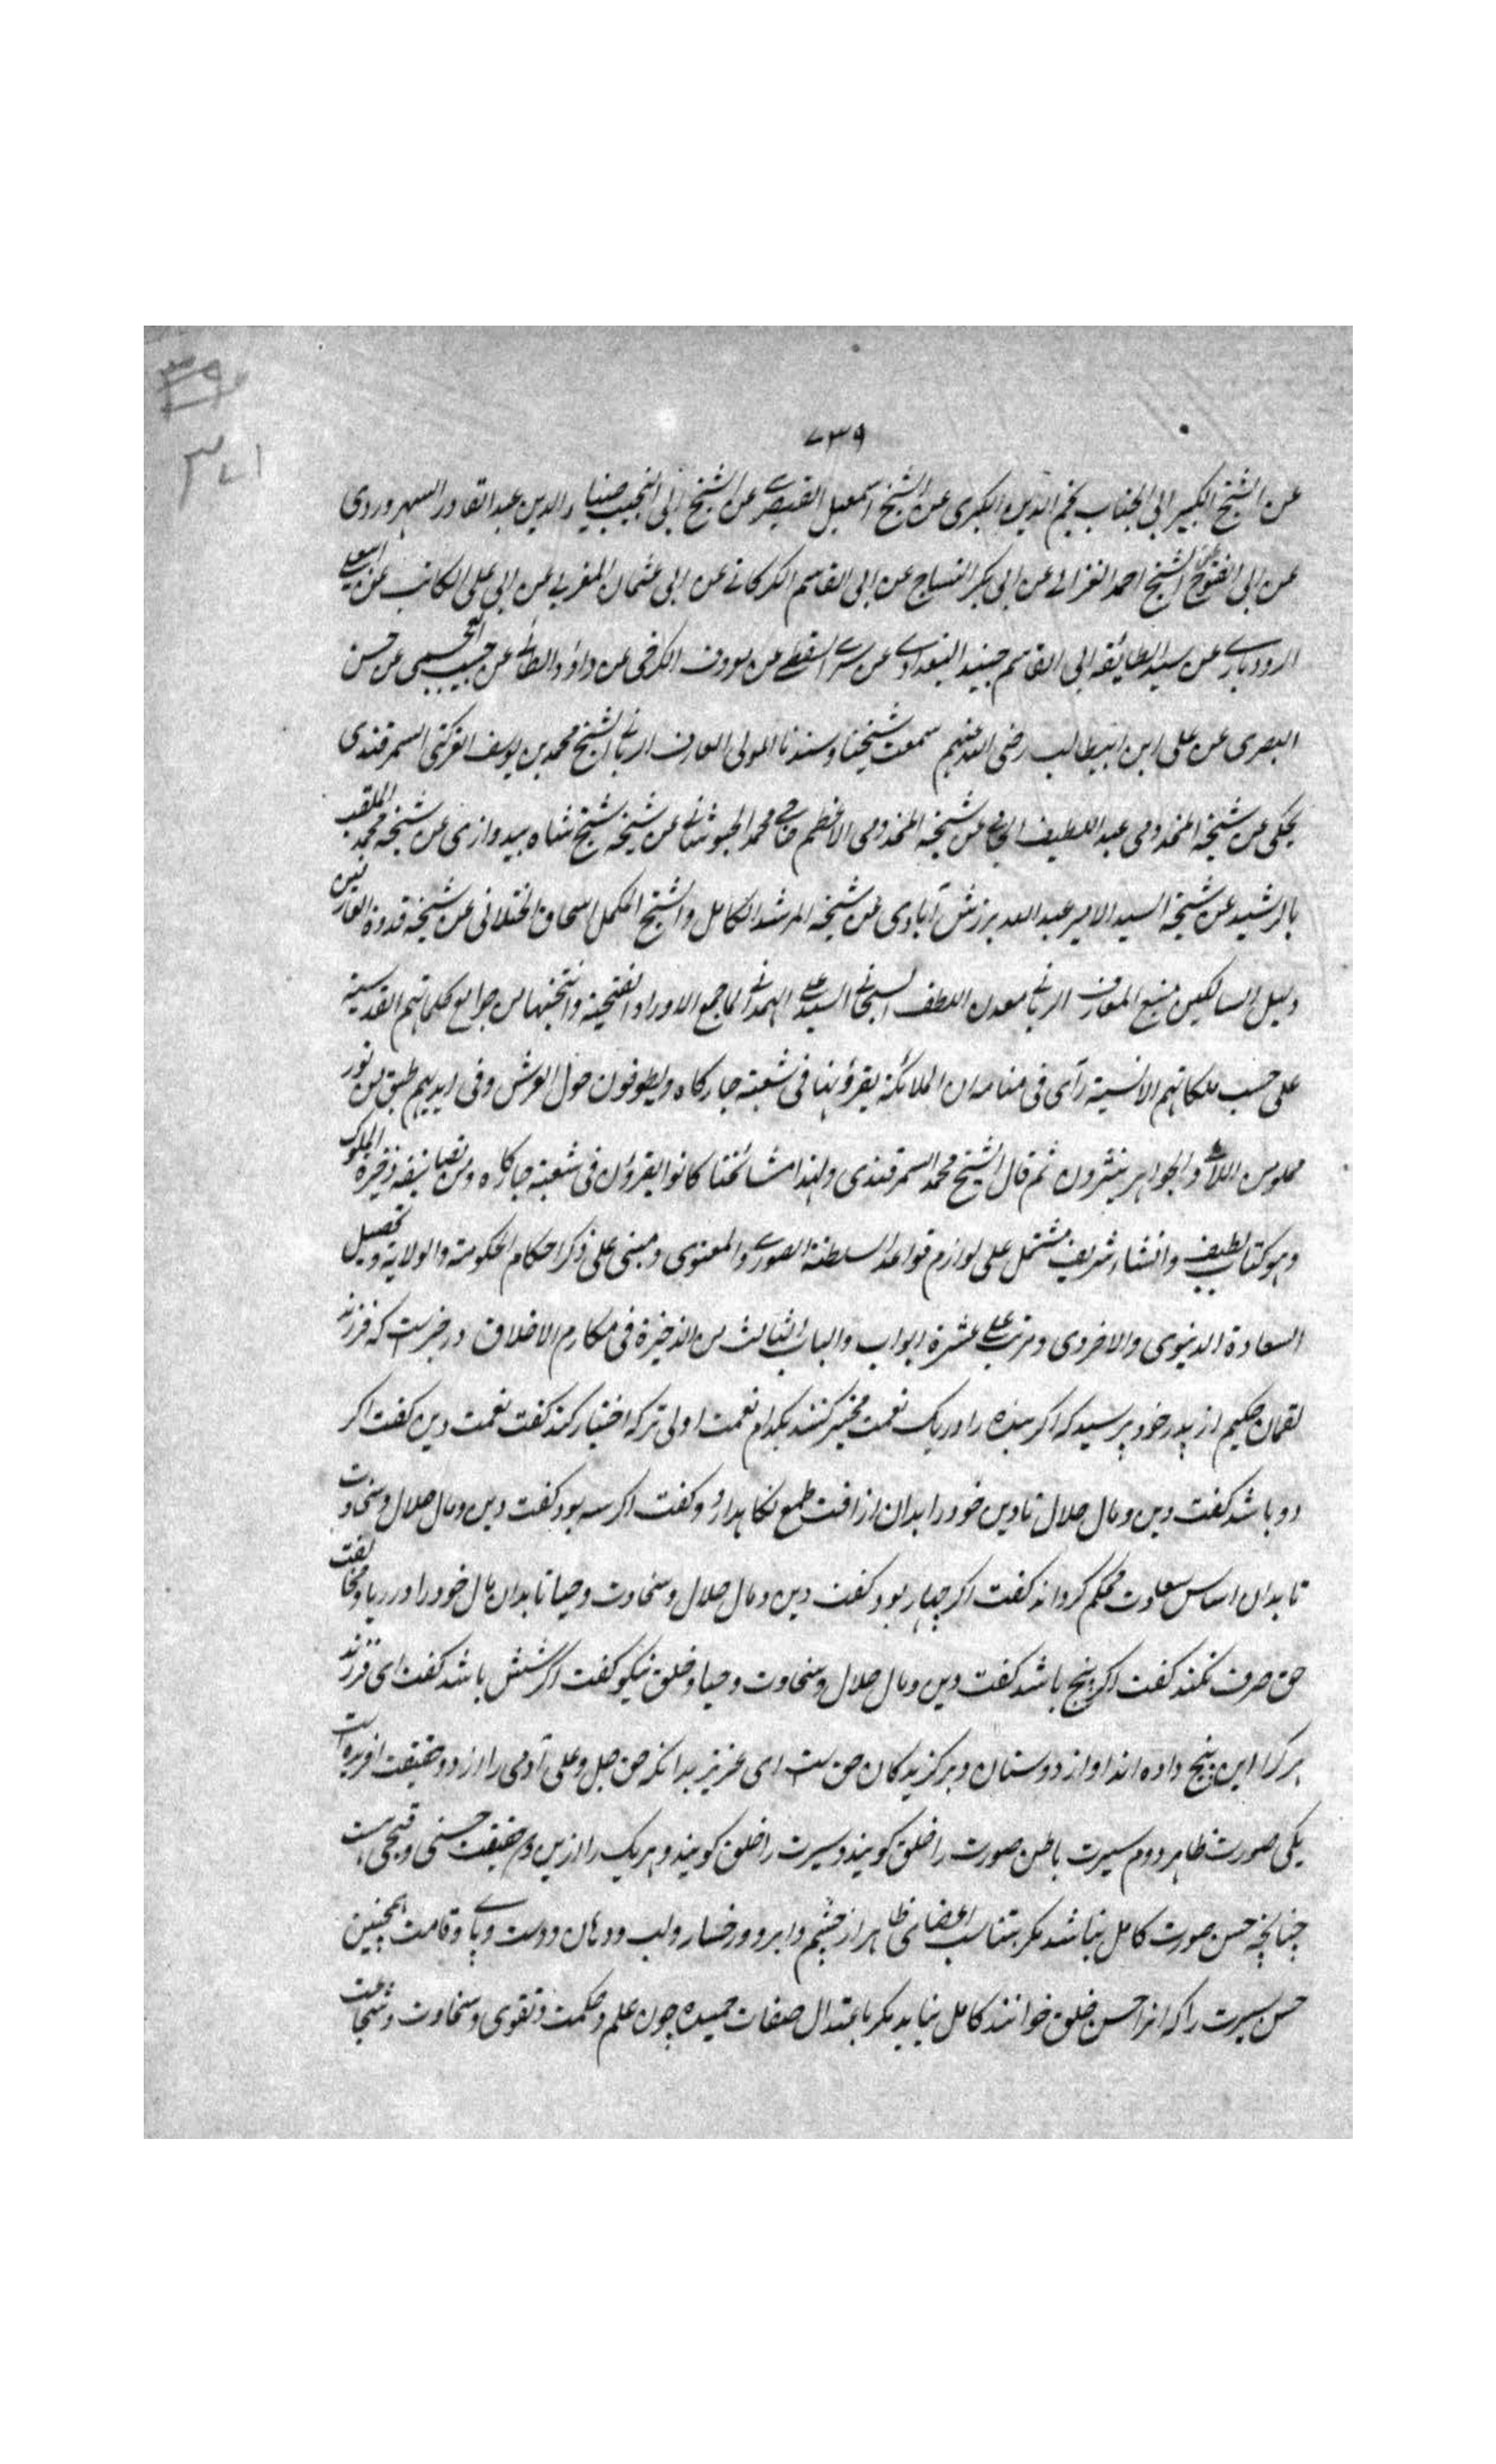 ۷۳۹
۳۷۱
عن الشیخ الکبیر ابی الجناب نجم الدین الکبری عن الشیخ اسمعیل القیصری عن الشیخ ابی النجیب ضیاء الدین عبد القادر السهروردی
عن ابی الفتوح الشیخ احمد الغزالی عن ابی بکر النساج عن ابی القاسم الکرکانی عن ابی عثمان المغربی عن ابی علی الکاتب عن ابی علی
الرودباری عن سید الطایفه ابی القاسم جنید البغدادی عن سری السقطی عن معروف الکرخی عن داؤد الطائی عن حبیب العجمی عن حسن
البصری عن علی ابن ابیطالب رضی الله عنهم سمعت شیخنا وسندنا المولی العارف الربانی الشیخ محمد بن یوسف السمرقندی
یحکی عن شیخه المخدومی عبد اللطیف الجامی عن شیخه المخدومی الاعظم حاجی محمد الخبوشانی عن شیخه شیخ شاه بیدوازی عن شیخه محمد الملقب
بالرشید عن شیخه السید الامیر عبد الله برزش آبادی عن شیخه المرشد الکامل والشیخ المکمل اسحاق الختلانی عن شیخه قدوة العارفین
دلیل السالکین منبع المعارف الربانی معدن اللطف السبحانی السید علی الهمدانی لما جمع الاوراد الفتحیة وانتخبها من جوامع کلماتهم القدسیة
علی حسب ملکاتهم الانسیة رآی فی منامه ان الملائکة یقرؤنها فی شعبة چارکاه ویطوفون حول العرش وفی ایدیهم طبق من نور
مملو من اللآلی والجواهر ینثرون ثم قال الشیخ محمد السمرقندی ولهذا مشائخنا کانوا یقرؤن فی شعبة چارکاه ومن تصانیفه ذخیرة الملوک
وهو کتاب لطیف وانشاء شریف مشتمل علی لوازم قواعد السلطنة الصوری والمعنوی ومبنی علی ذکر احکام الحکومة والولایة وتحصیل
السعادة الدنیوی والاخروی ومرتب علی عشرة ابواب والباب الثالث من الذخیرة فی مکارم الاخلاق در خبرست که فرزند
لقمان حکیم از پدر خود پرسید که اکر بنده را در یک نعمت مخیر کنند بکدام نعمت اولی تر که اختیار کند کفت نعمت دین کفت اکر
دو باشد کفت دین ومال حلال تا دین خود را بدان از افت طمع نکاهدارد وکفت اکر سه بود کفت دین ومال حلال وسخاوت
تا بدان اساس سعادت محکم کرداند کفت اکر چهار بود کفت دین ومال حلال وسخاوت وحیا تا بدان مال خود را در ریا ومخالفت
حق صرف نکند کفت اکر پنج باشد کفت دین ومال حلال وسخاوت وحیا وخلق نیکو کفت اکر شش باشد کفت ای فرزند
هر کرا این پنج داده اند او از دوستان وبرکزیدکان حق ست ای عزیز بدانکه حق جل وعلی آدمی را از دو حقیقت افریده است
یکی صورت ظاهر دوم سیرت باطن صورت را خلق کویند وسیرت را خلق کویند وهر یک را ازین دو حقیقت حسنی وقبحی است
چنانچه حسن صورت کامل نباشد مکر بتناسب اعضای ظاهر از چشم وابرو ورخسار ولب ودهان ودست وپای وقامت همچنین
حسن سیرت را که انرا حسن خلق خوانند کامل نیاید مکر باعتدال صفات حمیده چون علم وحکمت وتقوی وسخاوت وشجاعت